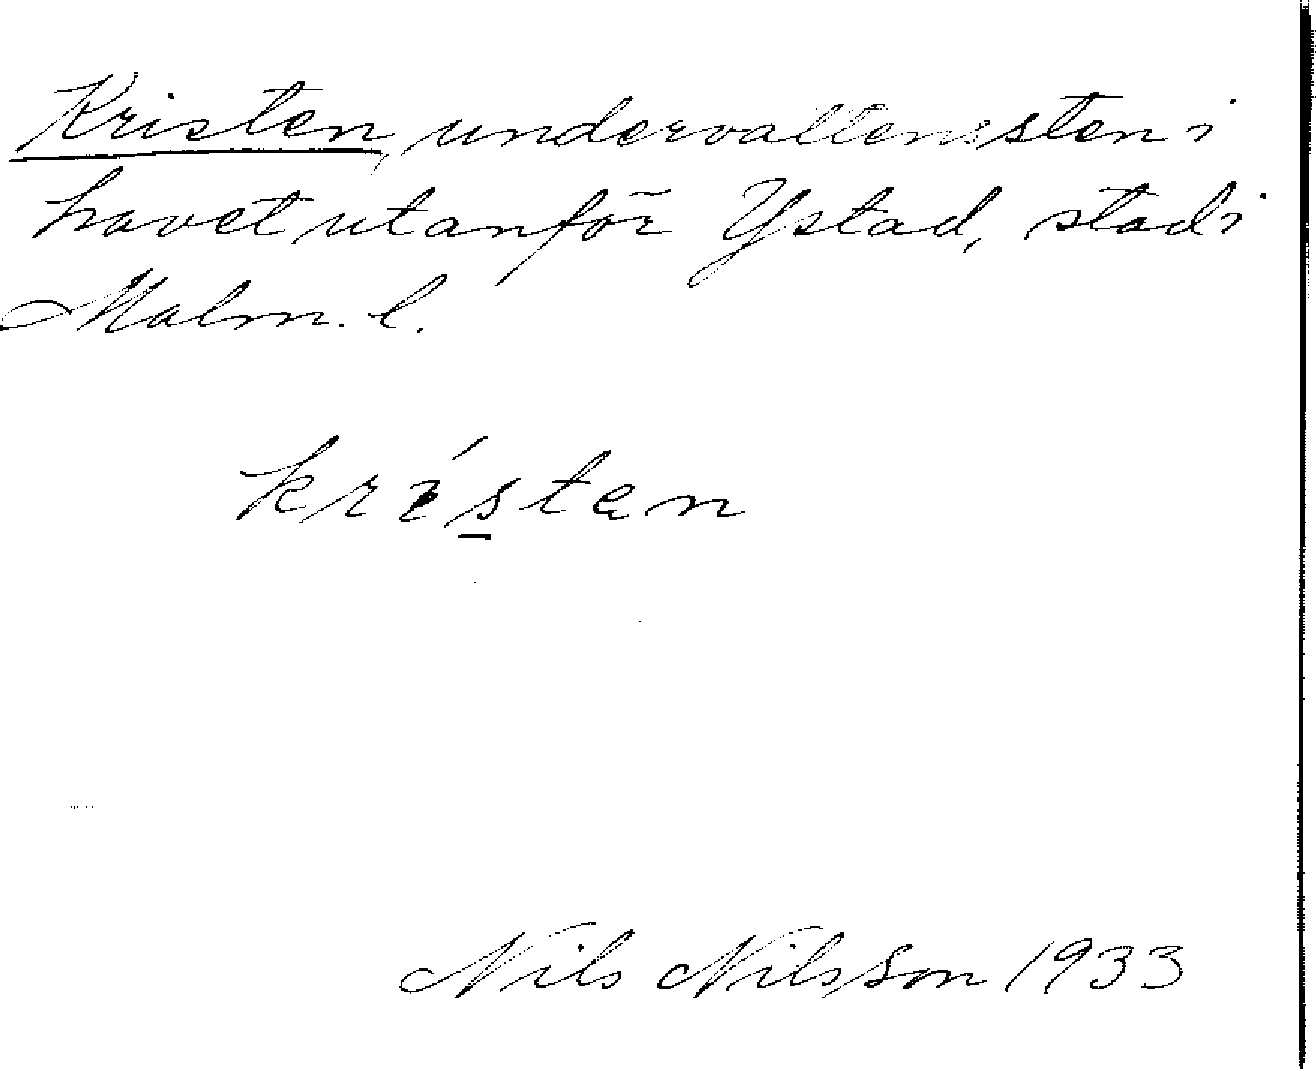 Kristen, undervattenssten i
havet utanför Ystad, stad i
Malm. l.
kristen
Nils Nilsson 1933